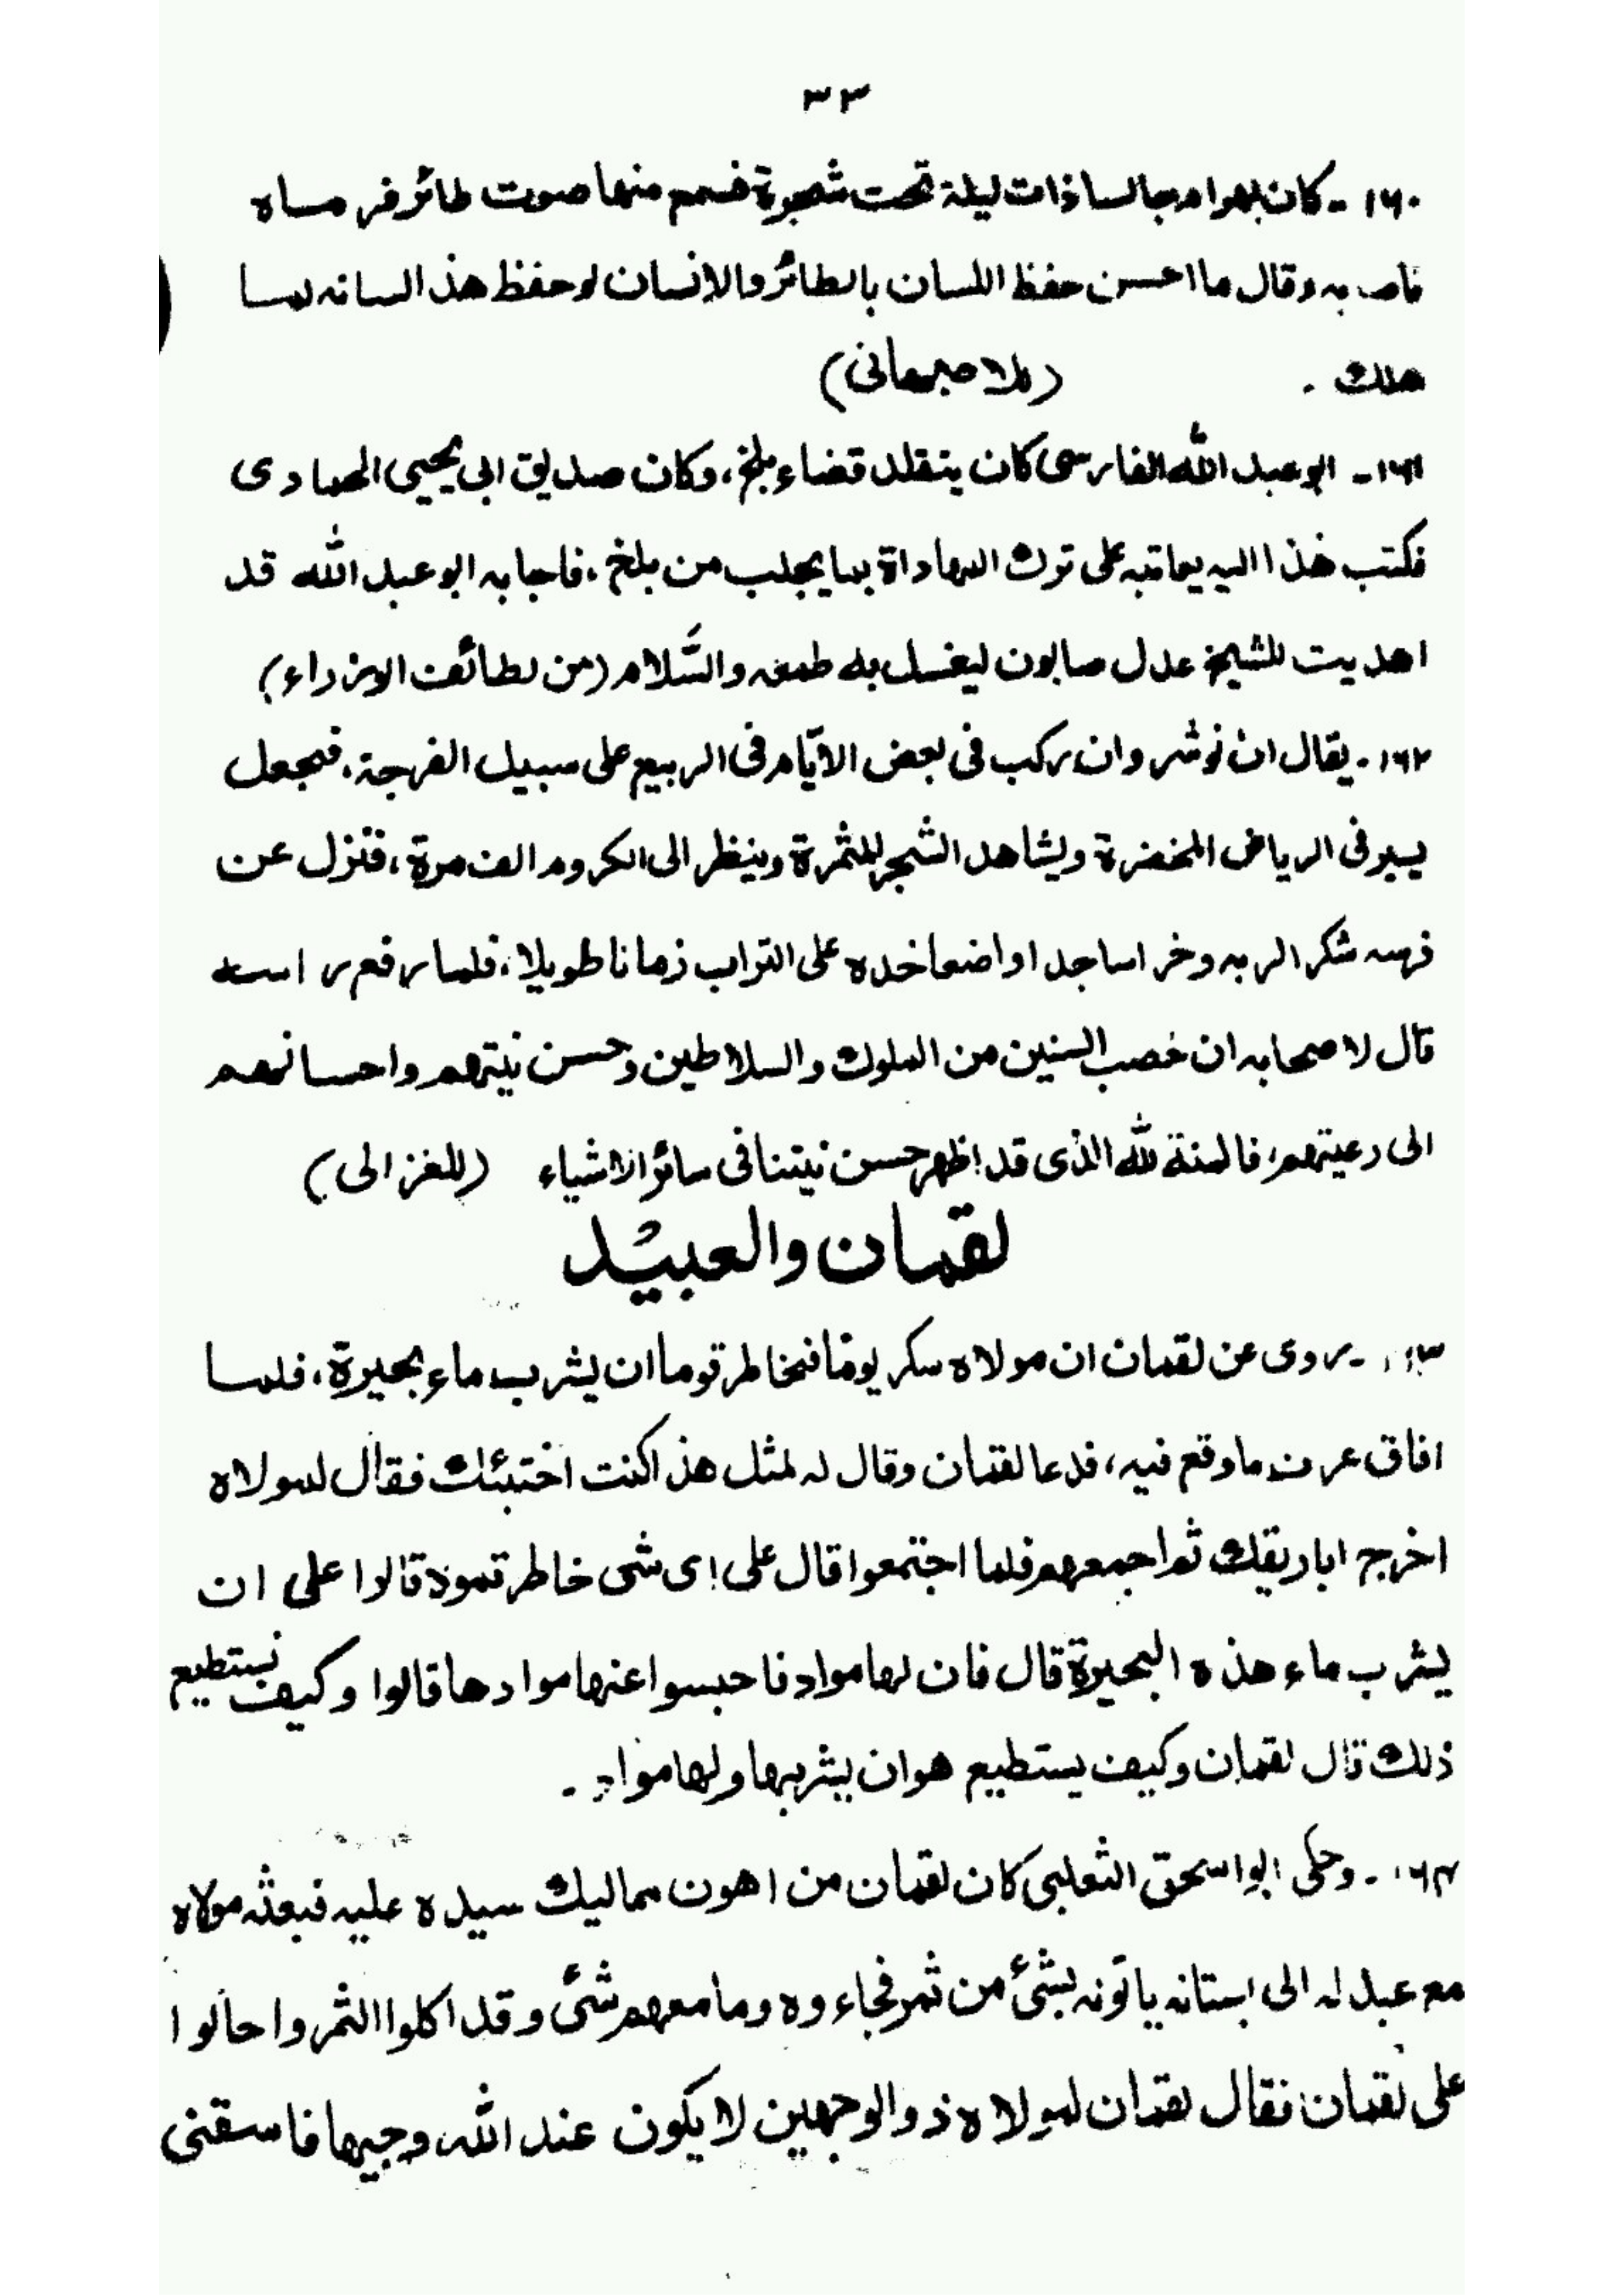 ٣٣
١٦٠- كان بهرام جالسا ذات ليلة تحت شجرة فسمع منها صوت طائر فرماه
فاصابه وقال ما احسن حفظ اللسان بالطائر والانسان لو حفظ هذا لسانه لما
هلك . (للاصبهانى)
١٦١- ابو عبد الله الفارسى كان يتقلد قضاء بلخ، وكان صديق ابى يحيى الحمادى
فكتب هذا اليه يعاتبه على ترك المهاداة بما يجلب من بلخ، فاجابه ابو عبد الله قد
اهديت للشيخ عدل صابون ليغسل به طمعه والسَّلام (من لطائف الوزراء)
١٦٢- يقال ان نوشروان ركب فى بعض الايّام فى الربيع على سبيل الفرجة، فجعل
يسير فى الرياض المخضرة ويشاهد الشجر المثمرة وينظر الى الكروم العامرة، فنزل عن
فرسه شكرا لربه وخر ساجدا واضعا خده على التراب زمانا طويلا، فلما رفع راسه
قال لاصحابه ان خصب السنين من الملوك والسلاطين وحسن نيتهم واحسانهم
الى رعيتهم، فالمنة لله الذى قد اظهر حسن نيتنا فى سائر الاشياء (للغزالى)
لقمان والعبيد
١٦٣- يروى عن لقمان ان مولاه سكر يوما فخاطر قوما ان يشرب ماء بحيرة، فلما
افاق عرف ما وقع فيه، فدعا لقمان وقال له لمثل هذا كنت اختبئك فقال لمولاه
اخرج اباريقك ثم اجمعهم فلما اجتمعوا قال على اى شى خاطرتموه قالوا على ان
يشرب ماء هذه البحيرة قال فان لها مواد فاحبسوا عنها موادها قالوا وكيف نستطيع
ذلك قال لقمان وكيف يستطيع هو ان يشربها ولها مواد .
١٦٤- وحكى ابو اسحق الثعلبى كان لقمان من اهون مماليك سيده عليه فبعثه مولاه
مع عبد له الى بستانه ياتونه بشئ من ثمر فجاءوه وما معهم شئ وقد اكلوا الثمر واحالوا
على لقمان فقال لقمان لمولاه ذو الوجهين لا يكون عند الله وجيها فاسقنى